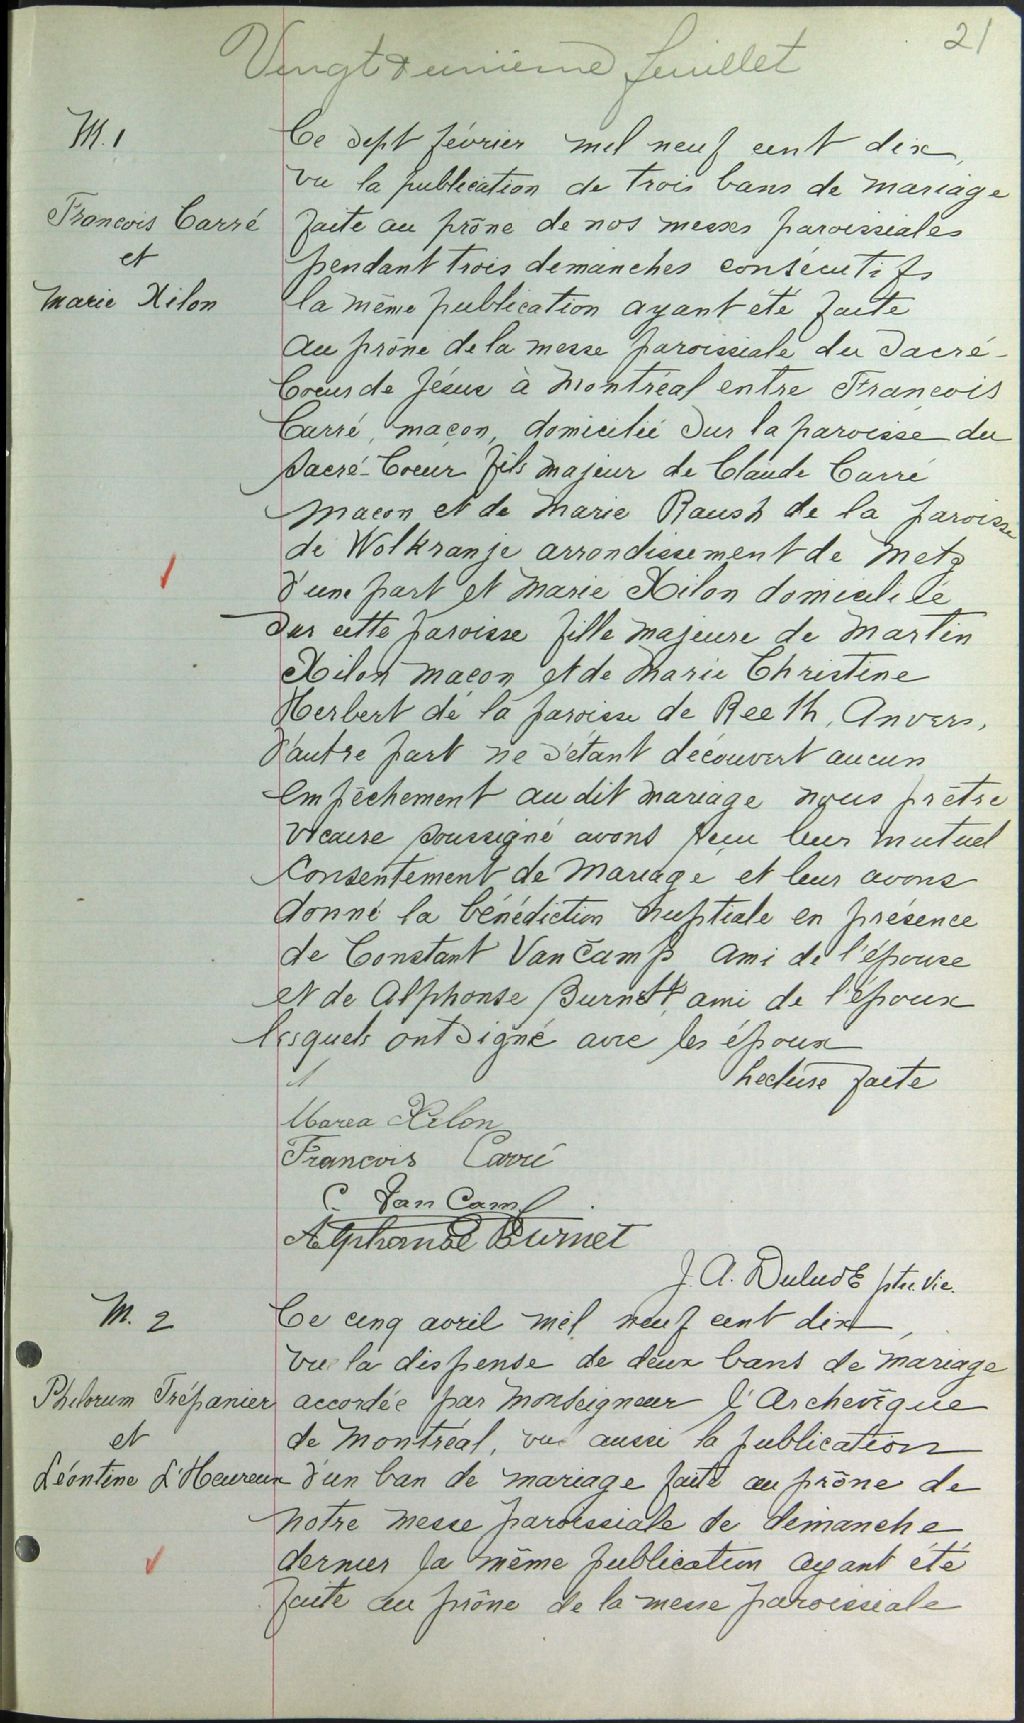 21
Vingt & unième feuillet
M. 1
François Carré
et
Marie Xilon
Ce sept février mil neuf cent dix,
vu la publication de trois bans de mariage
faite au prône de nos messes paroissiales
pendant trois dimanches consécutifs
la même publication ayant été faite
au prône de la messe paroissiale du Sacré-
Coeur de Jésus à Montréal entre François
Carré, maçon, domicilié sur la paroisse du
Sacré-Coeur fils majeur de Claude Carré
maçon et de Marie Raush de la paroisse
de Wolkranje arrondissement de Metz
d'une part et Marie Xilon domiciliée
sur cette paroisse fille majeure de Martin
Xilon maçon et de Marie Christine
Herbert de la paroisse de Reeth, Anvers,
d'autre part ne s'étant découvert aucun
empêchement au dit mariage nous prêtre
vicaire soussigné avons reçu leur mutuel
consentement de mariage et leur avons
donné la bénédiction nuptiale en présence
de Constant VanCamp ami de l'épouse
et de Alphonse Burnett ami de l'époux
lesquels ont signé avec les époux
Lecture faite
Marea Xilon
François Carré
C. Van Camp
Alphonse Burnet
J. A. Dulude ptre. vic.
M. 2
Philorum Trépanier
et
Léontine L'Heureux
Ce cinq avril mil neuf cent dix,
vu la dispense de deux bans de mariage
accordée par Monseigneur l'Archevêque
de Montréal, vu aussi la publication
d'un ban de mariage faite au prône de
notre messe paroissiale de dimanche
dernier la même publication ayant été
faite au prône de la messe paroissiale